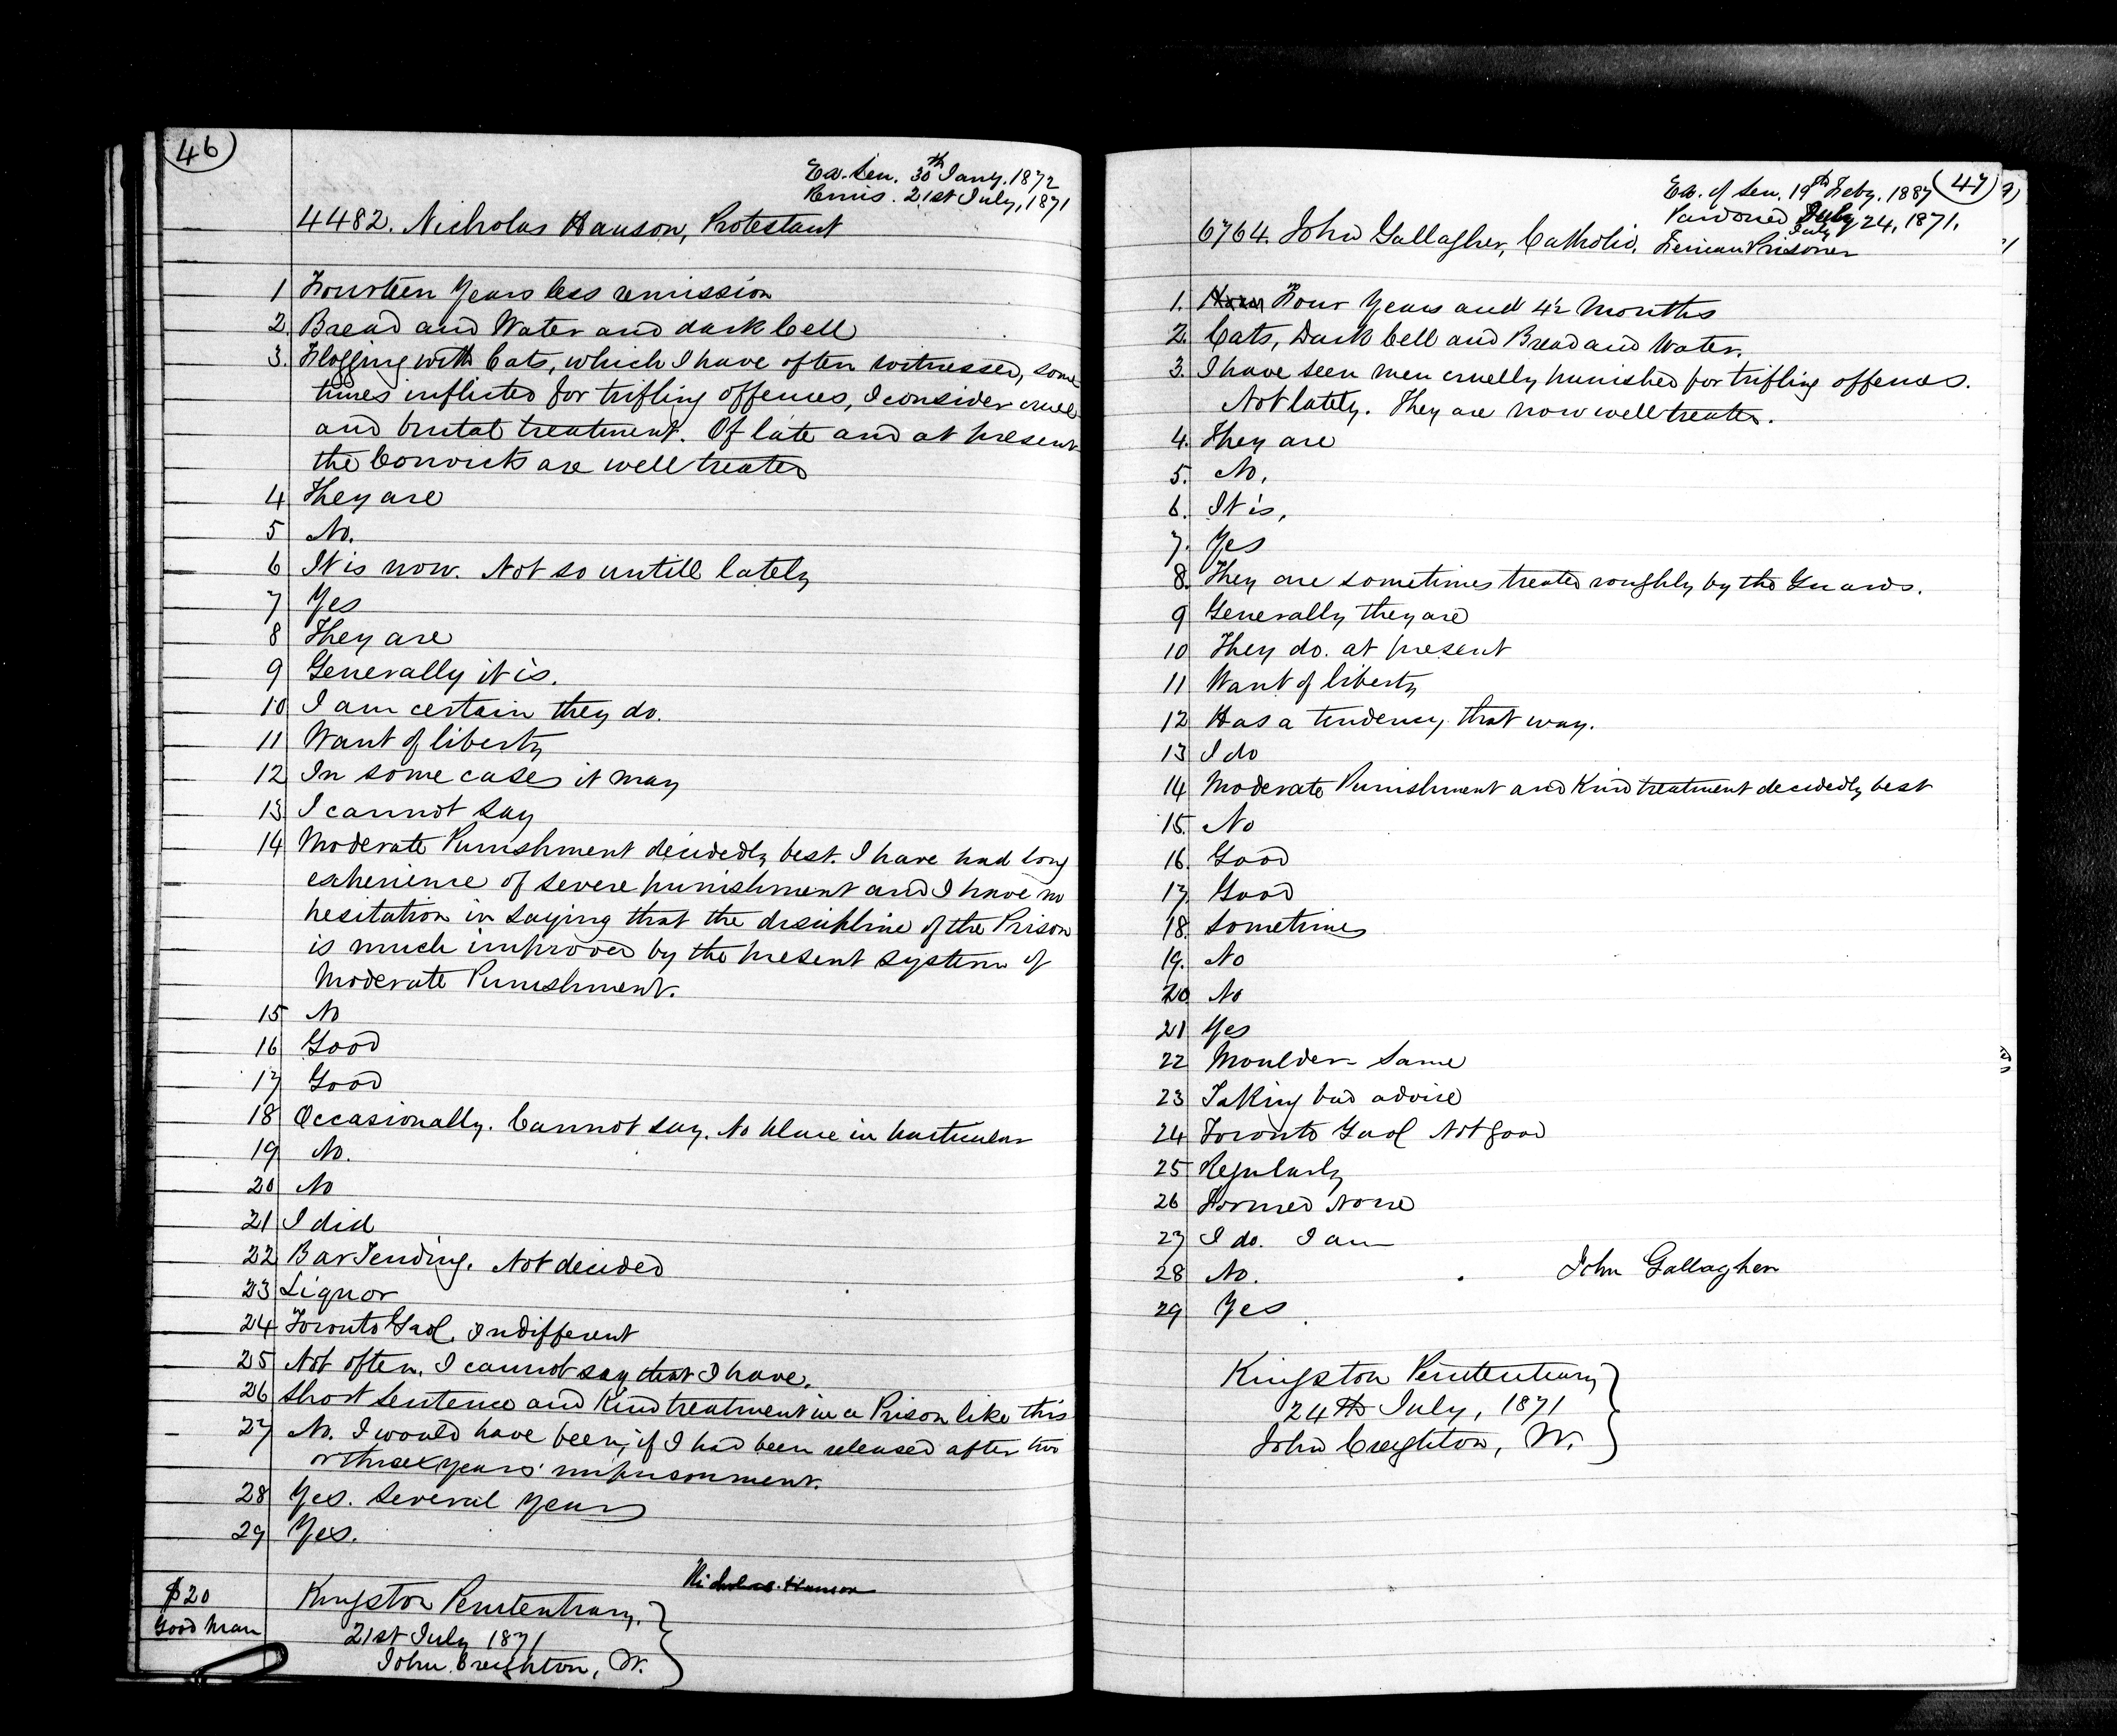 46
Ex. Sen. 30th Jany. 1872
Remis. 21st July, 1871
4482. Nicholas Hanson, Protestant
1 Fourteen Years less remission
2 Bread and Water and dark Cell
3. Flogging with Cats, which I have often witnessed, some
times inflicted for trifling offences, I consider cruel
and brutal treatment. Of late and at present
the Convicts are well treated
4 They are
5 No.
6 It is now. Not so untill lately
7 Yes
8 They are
9 Generally it is.
10 I am certain they do.
11 Want of liberty
12 In some cases it may
13 I cannot say
14 Moderate Punishment decidedly best. I have had long
experience of severe punishment and I have no
hesitation in saying that the discipline of the Prison
is much improved by the present system of
Moderate Punishment.
15 No
16 Good
17 Good
18 Occasionally. Cannot say. No place in particular
19 No.
20 No
21 I did
22 Bar Tending. Not decided
23 Liquor
24 Toronto Gaol. Indifferent
25 Not often. I cannot say that I have.
26 Short sentence and Kind treatment in a Prison like this
27 No. I would have been, if I had been released after two
or three years' imprisonment.
28 Yes. Several years
29 Yes.
Nicholas Hanson
$20
Good Man
Kingston Penitentiary,
21st July 1871
John Creighton, W.
47
Ex. of Sen. 19th Feby. 1887
Pardoned July 24, 1871.
July
6764. John Gallagher, Catholic. Fenian Prisoner
1. Four Years and 4½ Months
2. Cats, Dark Cell and Bread and Water.
3. I have seen men cruelly punished for trifling offences.
Not lately. They are now well treated.
4. They are
5. No.
6. It is.
7. Yes
8. They are sometimes treated roughly by the Guards.
9 Generally they are
10 They do. at present
11 Want of liberty
12 Has a tendency that way.
13 I do
14 Moderate Punishment and Kind treatment decidedly best
15. No
16. Good
17. Good
18. Sometimes
19. No
20 No
21 Yes
22 Moulder - Same
23 Taking bad advice
24 Toronto Gaol Not good
25 Regularly
26 Formed None
27 I do. I am
28 No.
John Gallagher
29 Yes.
Kingston Penitentiary
24th July, 1871
John Creighton, W.